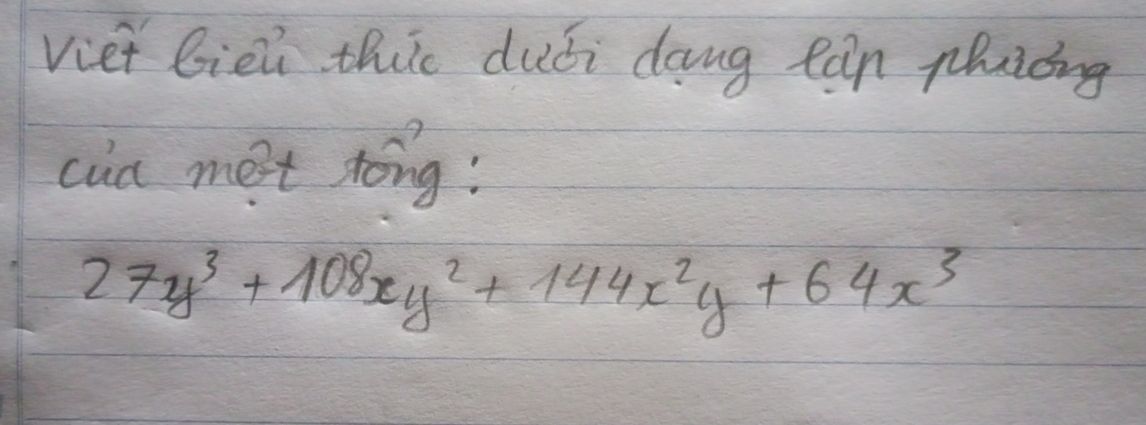 Viết biểu thức dưới dạng lập phương
của một tổng:
27y³ + 108xy² + 144x²y + 64x³